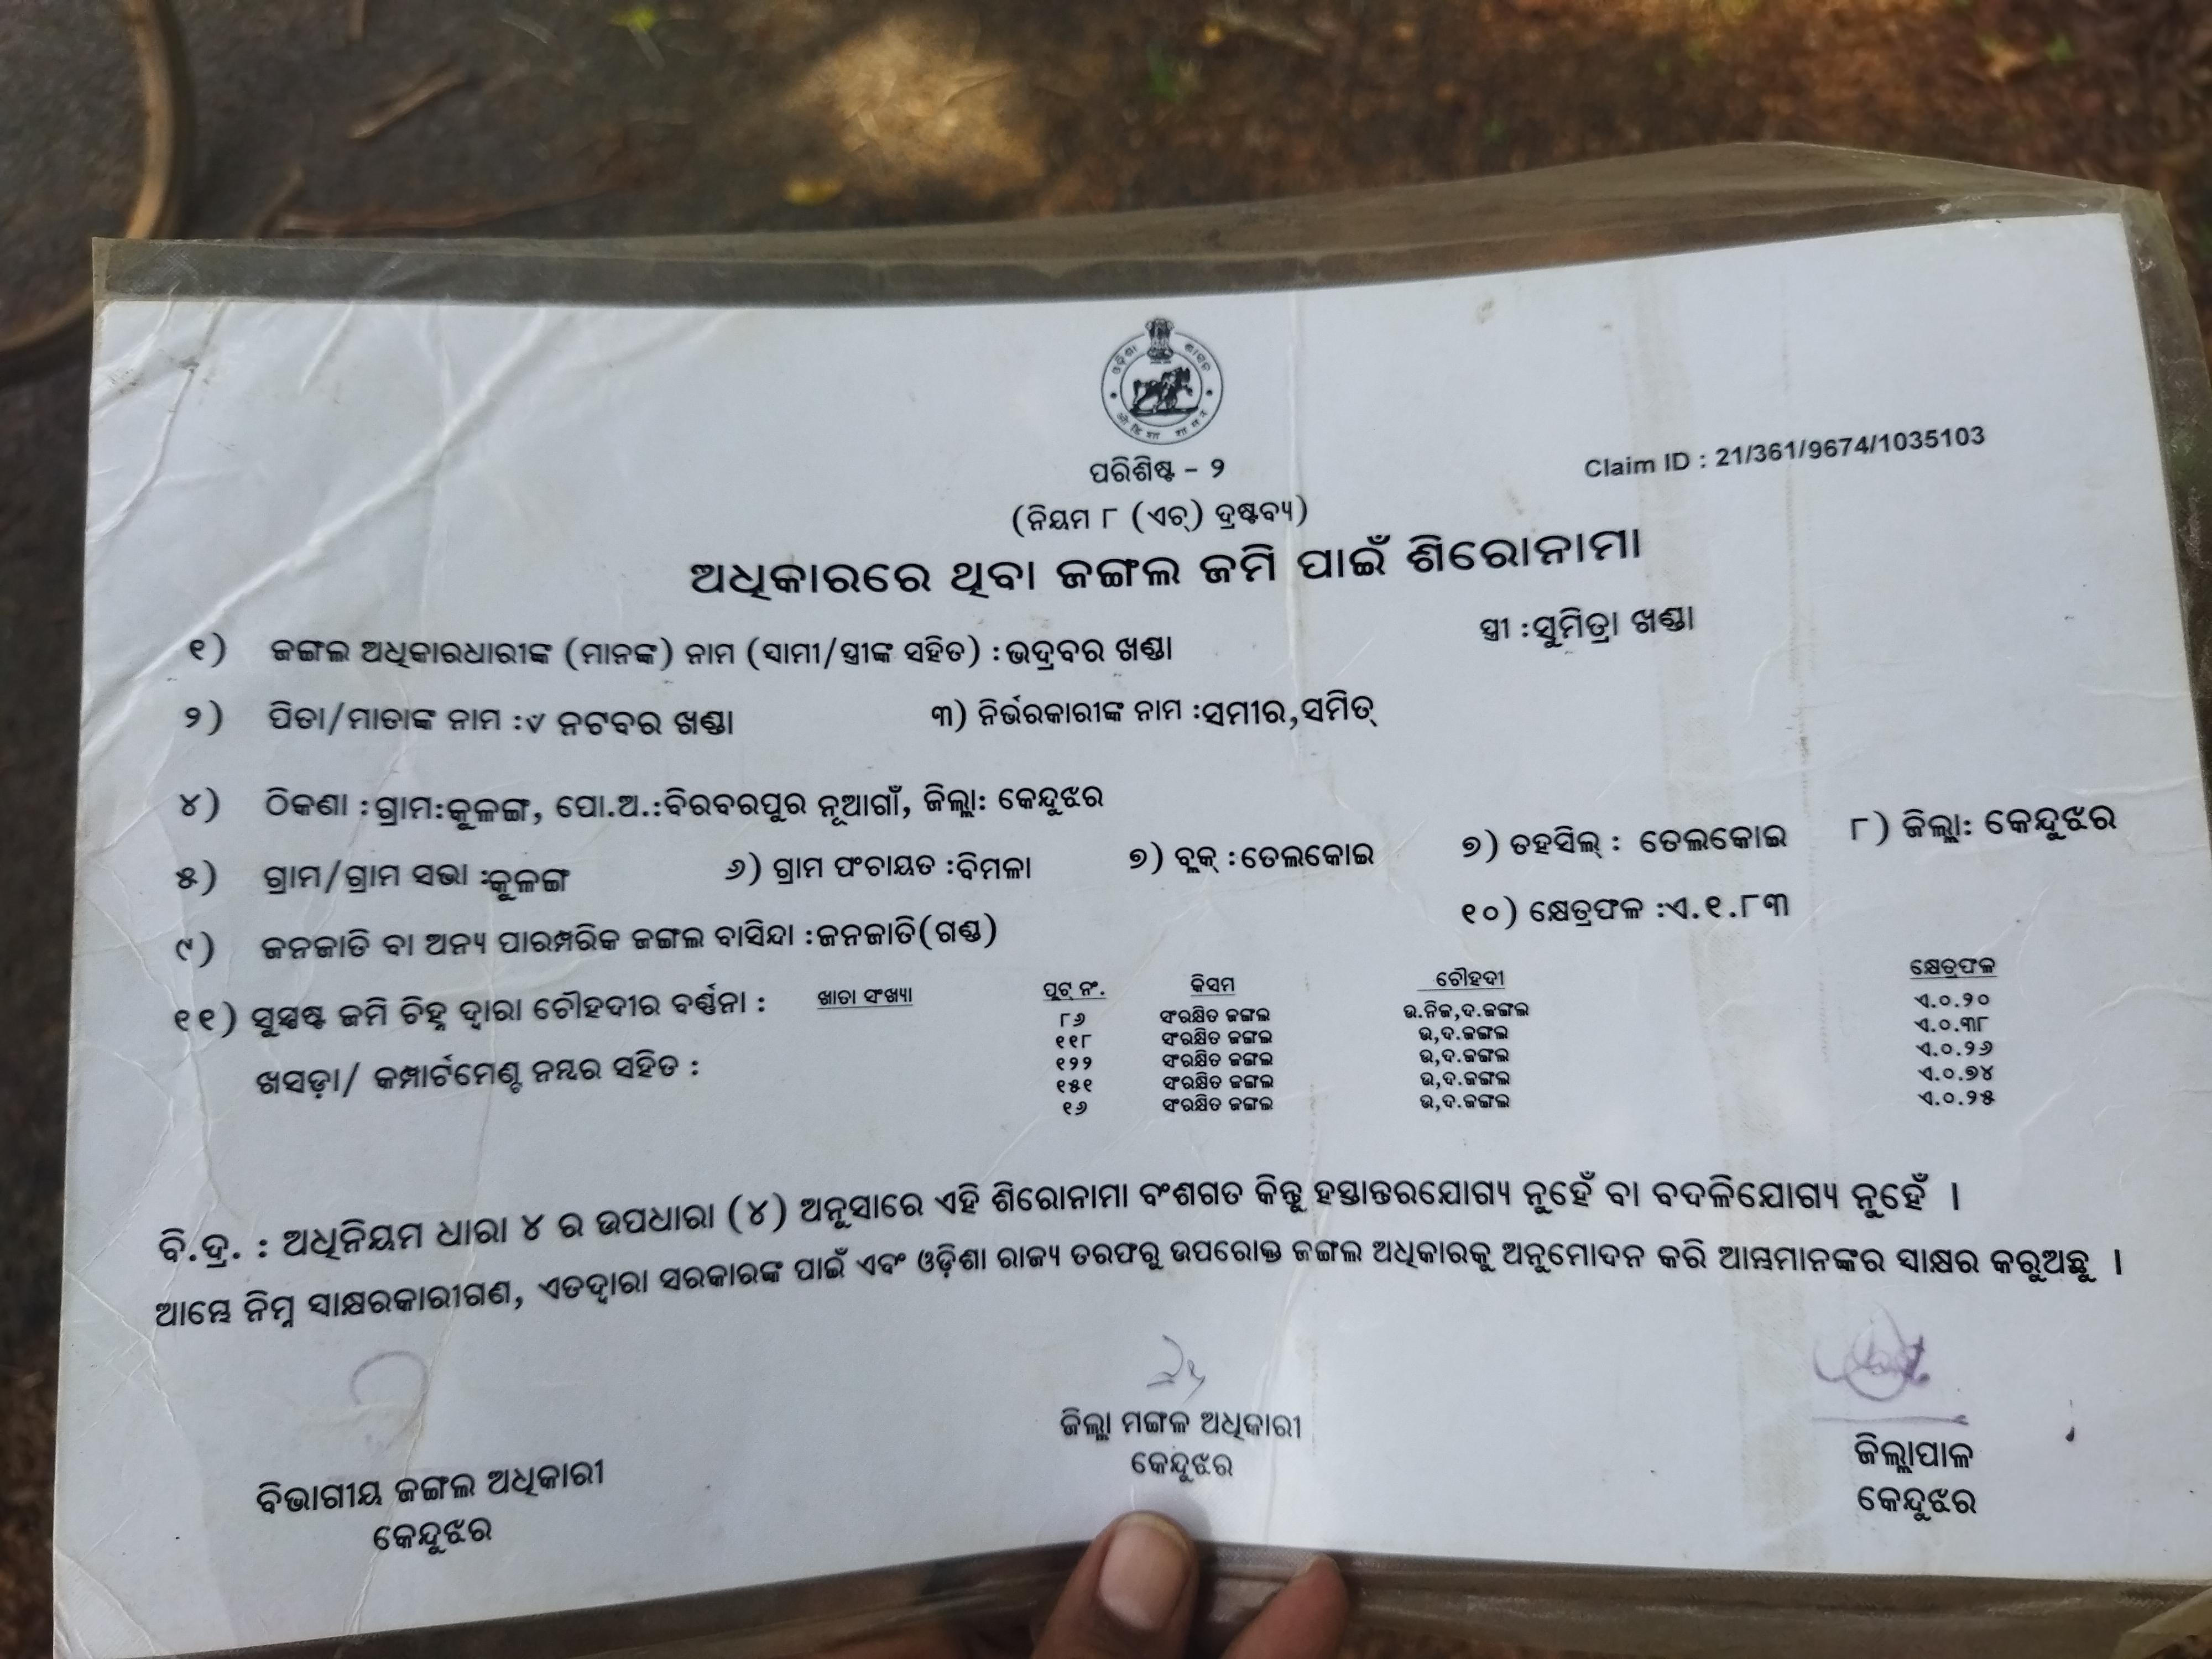 ଓଡ଼ିଶା ଶାସନ
ओडिशा शासन
ପରିଶିଷ୍ଟ - ୨
Claim ID : 21/361/9674/1035103
(ନିୟମ ୮ (ଏଚ୍) ଦ୍ରଷ୍ଟବ୍ୟ)
ଅଧିକାରରେ ଥିବା ଜଙ୍ଗଲ ଜମି ପାଇଁ ଶିରୋନାମା
୧) ଜଙ୍ଗଲ ଅଧିକାରଧାରୀଙ୍କ (ମାନଙ୍କ) ନାମ (ସାମୀ/ସ୍ତ୍ରୀଙ୍କ ସହିତ) :ଭଦ୍ରବର ଖଣ୍ଡା ସ୍ତ୍ରୀ :ସୁମିତ୍ରା ଖଣ୍ଡା
୨) ପିତା/ମାତାଙ୍କ ନାମ :୰ ନଟବର ଖଣ୍ଡା ୩) ନିର୍ଭରକାରୀଙ୍କ ନାମ :ସମୀର,ସମିତ୍
୪) ଠିକଣା :ଗ୍ରାମ:କୁଳଙ୍ଗ, ପୋ.ଅ.:ବିରବରପୁର ନୂଆଗାଁ, ଜିଲ୍ଲା: କେନ୍ଦୁଝର
୫) ଗ୍ରାମ/ଗ୍ରାମ ସଭା :କୁଳଙ୍ଗ ୬) ଗ୍ରାମ ପଂଚାୟତ :ବିମଳା ୭) ବ୍ଲକ୍ :ତେଲକୋଇ ୭) ତହସିଲ୍ : ତେଲକୋଇ ୮) ଜିଲ୍ଲା: କେନ୍ଦୁଝର
୯) ଜନଜାତି ବା ଅନ୍ୟ ପାରମ୍ପରିକ ଜଙ୍ଗଲ ବାସିନ୍ଦା :ଜନଜାତି(ଗଣ୍ଡ) ୧୦) କ୍ଷେତ୍ରଫଳ :ଏ.୧.୮୩
୧୧) ସୁସ୍ପଷ୍ଟ ଜମି ଚିହ୍ନ ଦ୍ୱାରା ଚୌହଦୀର ବର୍ଣ୍ଣନା : ଖାତା ସଂଖ୍ୟା ପ୍ଲଟ୍ ନଂ. କିସମ ଚୌହଦୀ କ୍ଷେତ୍ରଫଳ
୮୬ ସଂରକ୍ଷିତ ଜଙ୍ଗଲ ଉ.ନିଜ,ଦ.ଜଙ୍ଗଲ ଏ.୦.୨୦
୧୧୮ ସଂରକ୍ଷିତ ଜଙ୍ଗଲ ଉ,ଦ.ଜଙ୍ଗଲ ଏ.୦.୩୮
ଖସଡ଼ା/ କମ୍ପାର୍ଟମେଣ୍ଟ ନମ୍ବର ସହିତ : ୧୨୨ ସଂରକ୍ଷିତ ଜଙ୍ଗଲ ଉ,ଦ.ଜଙ୍ଗଲ ଏ.୦.୨୬
୧୫୧ ସଂରକ୍ଷିତ ଜଙ୍ଗଲ ଉ,ଦ.ଜଙ୍ଗଲ ଏ.୦.୭୪
୧୬ ସଂରକ୍ଷିତ ଜଙ୍ଗଲ ଉ,ଦ.ଜଙ୍ଗଲ ଏ.୦.୨୫
ବି.ଦ୍ର. : ଅଧିନିୟମ ଧାରା ୪ ର ଉପଧାରା (୪) ଅନୁସାରେ ଏହି ଶିରୋନାମା ବଂଶଗତ କିନ୍ତୁ ହସ୍ତାନ୍ତରଯୋଗ୍ୟ ନୁହେଁ ବା ବଦଳିଯୋଗ୍ୟ ନୁହେଁ ।
ଆମ୍ଭେ ନିମ୍ନ ସାକ୍ଷରକାରୀଗଣ, ଏତଦ୍ୱାରା ସରକାରଙ୍କ ପାଇଁ ଏବଂ ଓଡ଼ିଶା ରାଜ୍ୟ ତରଫରୁ ଉପରୋକ୍ତ ଜଙ୍ଗଲ ଅଧିକାରକୁ ଅନୁମୋଦନ କରି ଆମ୍ଭମାନଙ୍କର ସାକ୍ଷର କରୁଅଛୁ ।
ବିଭାଗୀୟ ଜଙ୍ଗଲ ଅଧିକାରୀ
କେନ୍ଦୁଝର
ଜିଲ୍ଲା ମଙ୍ଗଳ ଅଧିକାରୀ
କେନ୍ଦୁଝର
ଜିଲ୍ଲାପାଳ
କେନ୍ଦୁଝର